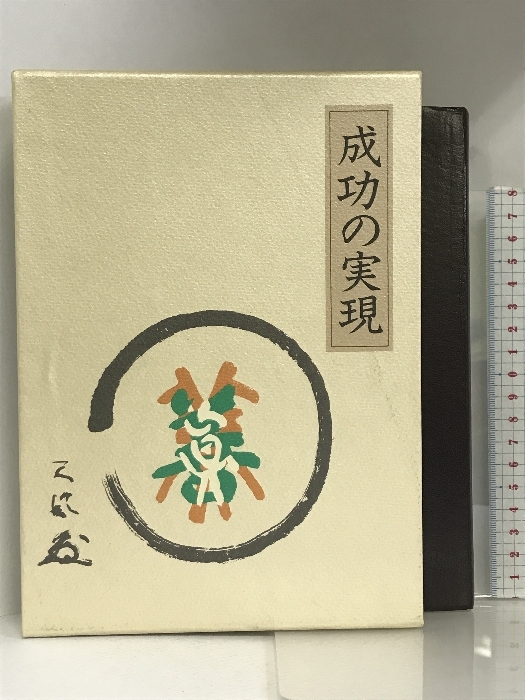 成功の実現
天風
8
7
6
5
4
3
2
1
0
9
8
7
6
5
4
3
2
1